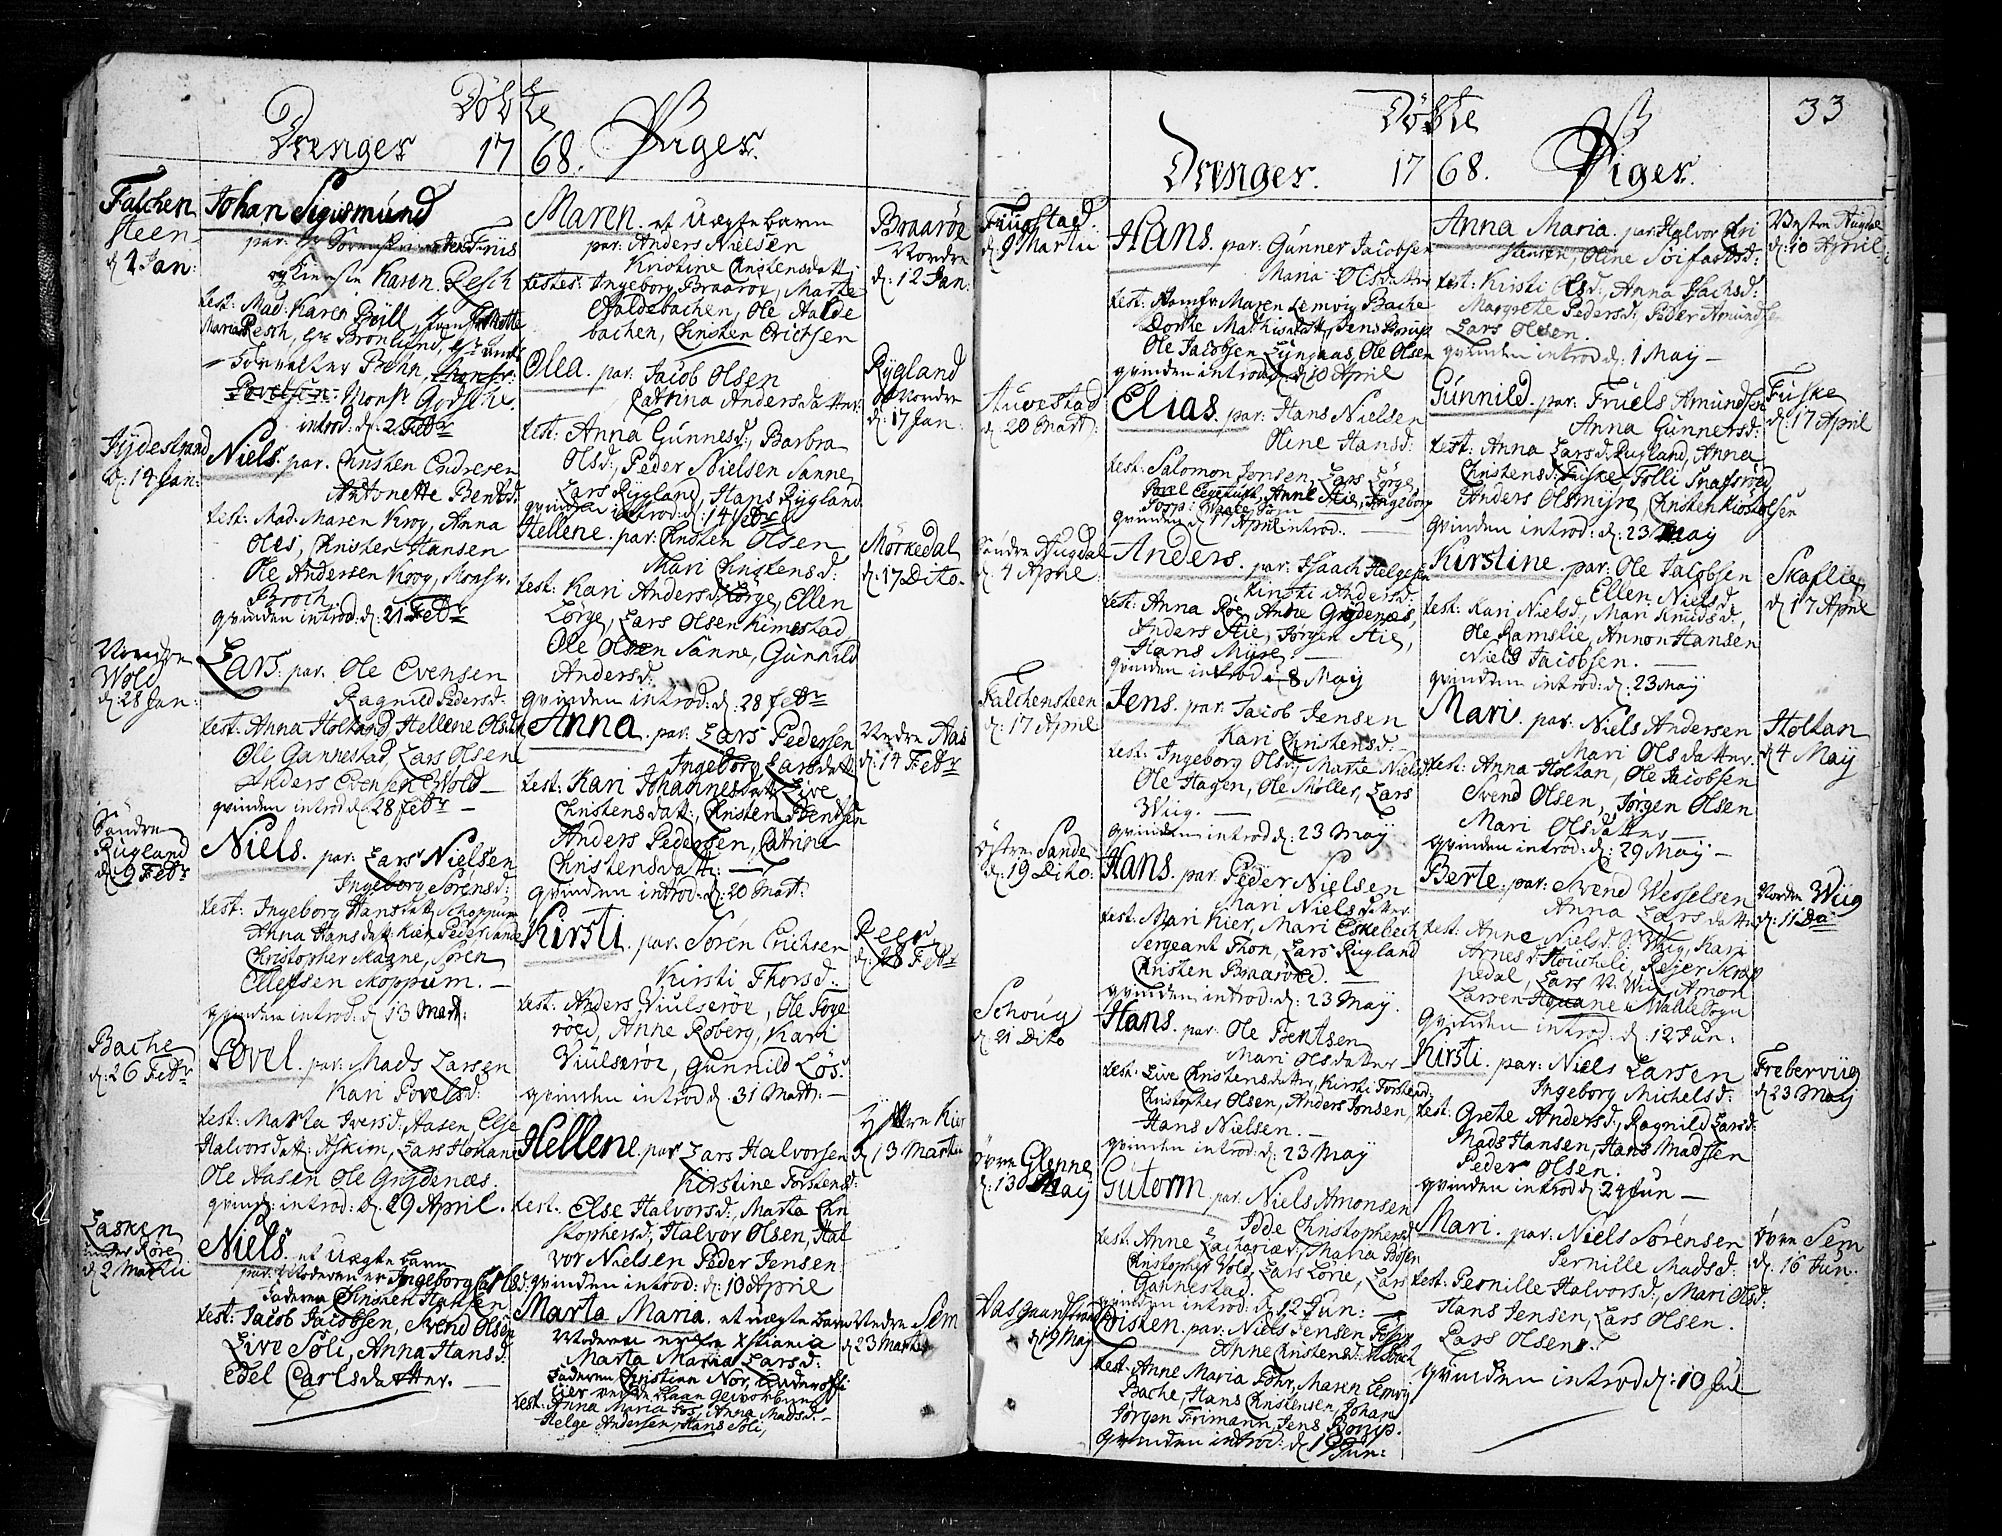 Döbte
Drenger 1768. Piger.
Falchen
steen
d. 1 Jan:
Johan Sigismund
par:
Karen Resch
test: Mad: Karen
Maria Resch, Bronlund,
forvalter Behn,
Povelsen Monsr
introd: d. 2 Febr
Tydestrand
d: 14 Jan:
Niels. par. Christen Endresen
Antonette Bentsd:
test: Mad: Maren Krog, Anna
Oles, Christen Hansen
Ole Andersen Krog, Monsr.
Broch.
qvinden introd: d: 21 Febr
Nordre
Wold
d. 28 Jan:
Lars. par. Ole Evensen
Ragnild Pedersd:
test: Anna Holtand, Hellene Olsdat
Ole Gannestad, Lars Olsen
Anders Evensen Wold
qvinden introd d. 28 febr
Söndre
Rugland
d: 9 Febr
Niels. par: Lars Nielsen
Ingeborg Sörensd:
test: Ingeborg Hansdatt, Schoppum
Anna Hansdatt: Kier,
Christopher Magne, Sören
Ellefsen Skoppum.
qvinden introd: d. 13 Mart:
Bache
d: 26 Febr
Povel. par: Mads Larsen
Kari Povelsd:
test: Marta Iversd: Aasen, Else
Halvorsdatt: Askim, Lars Honane
Ole Aasen Ole Grydenæs.
qvind: introd: d. 29 April.
Lasken
under Röre
d 2 Martii
Niels. et Uægte barn
par: Moderen er Ingeborg Carlsd:
faderen Christen Hansen
test: Jacob Jacobsen, Svend Olsen
Live Soli, Anna Hansd:
Edel Carlsdatter.
Maren. et Uægte barn
par: Anders Nielsen
Kristine Christensdatt:
testes: Ingeborg Braaröe, Marte
Haldebachen, Ole Halde
bachen, Christen Erichsen
Braaröe
Nordre
d: 12 Jan:
Olea. par: Jacob Olsen
Catrina Andersdatter
test: Anna Gunnesd:, Barbra
Olsd:, Peder Nielsen Sanne,
Lars Rygland, Hans Rygland
qvinden introd: d: 14 Febr
Rygland
Nondre
d: 17 Jan:
Hellene. par: Christen Olsen
Mari Christensd:
test: Kari Andersd, Lörge, Ellen
Lörge, Lars Olsen Kimestad
Ole Olsen Sanne, Gunnild
Andersd:
qvinden introd: d: 28 Febr
Mörkedal
d: 17 Dito.
Anna. par: Lars Pedersen
Ingeborg Larsdatt
test: Kari Johannesdatt, Live
Christensdatt:, Christen Bentsen
Anders Pedersen, Catrina
Christensdatt:
qvinden introd: d: 20 Mart:
Nedre Aas
d: 14 Febr
Kirsti. par: Sören Erichsen
Kirsti Thorsd:
test: Anders Viulseröe, Ole Foye
röed, Anne Roberg, Kari
Viulseröe, Gunnild Lös:
qvinden introd: d 31 Mart:
d: 28 Febr
Hellene. par Lars Halvorsen
Kirstine Torstensd:
test: Else Halvorsd:, Marta Chri
stophersd:, Halvor Olsen, Hal
vor Nielsen Peder Jensen
qvinden introd: d: 10 April
Kier
d 13 Martii
Marta Maria. et uægte barn
Moderen er fra Xstiania
Marta Maria Larsd:
Faderen Christian Nor,
test: Anna Maria Fos, Anna Madsd:
Helge Andersen, Hans Soli,
Nedre Sem
d 23 Martii
33
Döbte
Drenger. 1768. Piger.
Fuugstad
d. 9 Martii
Hans. par: Gunner Jacobsen
Maria Olsdatter
test: Jomfr: Maren Lemvig Bache
Dorthe Mathisdatt, Jens Borup
Ole Jacobsen Lyngaas, Ole Olsen
qvinden introd: d: 10 April
Stuvestad
d. 20 Mart:
Elias. par: Hans Nielsen
Oline Hansd:
test: Salomon Jonsen, Lars Lörge,
Povel Eegekult, Anne Aie, Ingeborg
qvinden d 17 April introd:
Söndre Augdal
d: 4 April:
Anders. par: Isaach Helgesen
Kirsti Andersd:
test: Anna Röe, Anne Grydenæs,
Anders Aie, Jörgen Aie,
Hans Myre.
qvinden introd: 8 May
Falchensteen
d: 17 April
Jens. par: Jacob Jensen
Kari Christensd:
test: Ingeborg Olsd: Marte Nielsd:
Ole Hagen, Ole Möller, Lars
Wiig.
qvinden introd d: 23 May
Östre Sande
d: 19 Dito:
Hans. par: Peder Nielsen
Mari Nielsdatter
test: Mari Kier, Mari Eskebech
Sergeant Thon, Lars Rugland
Christen Braaröed.
qvinden introd: d: 23 May.
Schoug
d 21 Dito
Hans. par: Ole Bentsen
Mari Olsdatter
test: Live Christensdatter, Kirsti
Christopher Olsen, Anders Jonsen,
Hans Nielsen.
qvinden introd: d: 23 May
övre Glenne
d: 13 May
Gutorm par: Niels Amonsen
Idde Christophersd:
test: Anne Zachariæ: Maria
Christopher Vold, Lars Lörie, Lars
Gannestad.
qvinden introd: d 12 Jun:
Aasgaardstrand
d 19 May
Christen. par: Niels Jensen
Anne Christensd:
test: Anne Maria Fohr, Maren Lemvig
Bache, Hans Christensen, Johan
Jörgen Frimann, Jens Borup.
qvinden introd: d 19 Jun:
Anna Maria. par: Halvor Chri
stensen, Oline
test: Kirsti Olsd:, Anna Isachsd:
Margrete Pedersd: Peder Amundsen
Lars Olsen.
qvinden introd d: 1 May
Vesten Augdal
d: 10 April
Gunnild. par: Truels Amundsen
Anna Gunnersd:
test: Anna Larsd: Rugland, Anna
Christensd: Fuske, Tolli
Anders Olsmyre, Christen Kiostolfsen
qvinden introd: d: 23 May
Fuske
d: 17 April
Kirstine. par: Ole Jacobsen
Ellen Nielsd:
test: Kari Nielsd:, Mari Knudsd:,
Ole Ramslie, Annon Hansen
Niels Jacobsen.
qvinden introd: d: 23 May
Skaflie,
d 17 April
Mari. par: Niels Andersen
Mari Olsdatter.
test: Anna Holtan, Ole Jacobsen
Svend Olsen, Jörgen Olsen
Mari Olsdatter
qvinden introd: d: 29 May
Holtan
d 4 May
Berte. par: Svend Wesselsen
Anna Larsdatter
test: Anne Nielsd: V: Wiig, Kari
Arnesd
pedal, Lars V: Wiig Amon
Larsen
qvinden introd: d: 12 Jun:
Nordre Wiig
d: 11 Do
Kirsti. par: Niels Larsen
Ingeborg Michelsd:
test: Grete Andersd:, Ragnild Larsd:
Mads Hansen, Hans Madsen
Peder Olsen.
qvinden introd: d 24 Jun
Freberviig
d 23 May
Mari. par: Niels Sörensen
Pernille Madsd:
test: Pernille Halvorsd:, Mari Olsd:
Hans Jensen, Lars Olsen.
Lars Olsen.
qvinden introd: d: 10 Jul
övre Sem
d: 16 Jun.